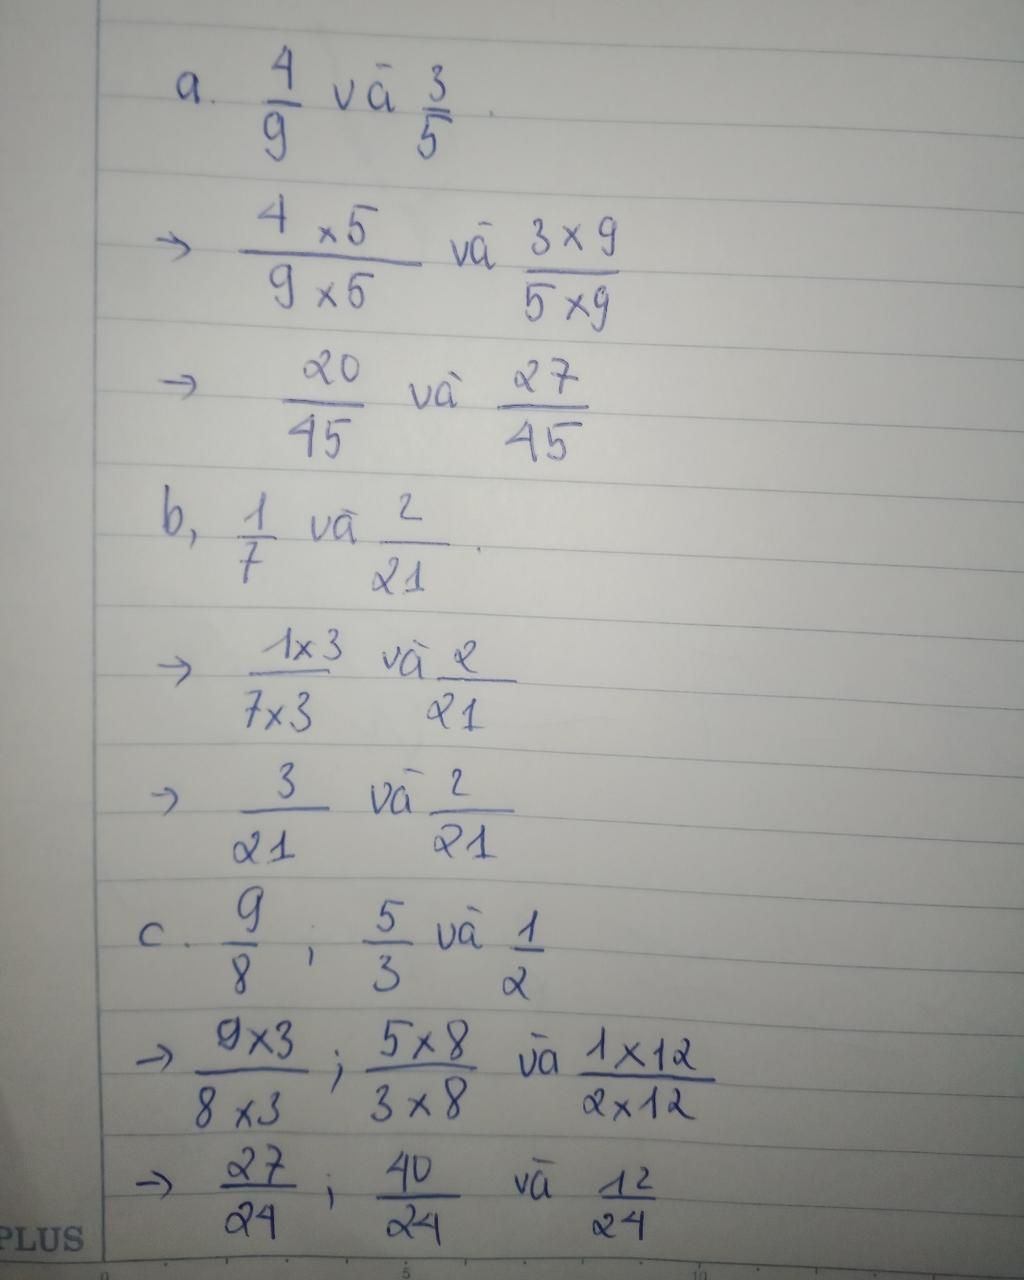 a. 4/9 và 3/5.
→ 4 x 5 / 9 x 5 và 3 x 9 / 5 x 9
→ 20/45 và 27/45
b, 1/7 và 2/21.
→ 1 x 3 / 7 x 3 và 2/21
→ 3/21 và 2/21
c. 9/8 ; 5/3 và 1/2
→ 9 x 3 / 8 x 3 ; 5 x 8 / 3 x 8 và 1 x 12 / 2 x 12
→ 27/24 ; 40/24 và 12/24
PLUS
0 5 10